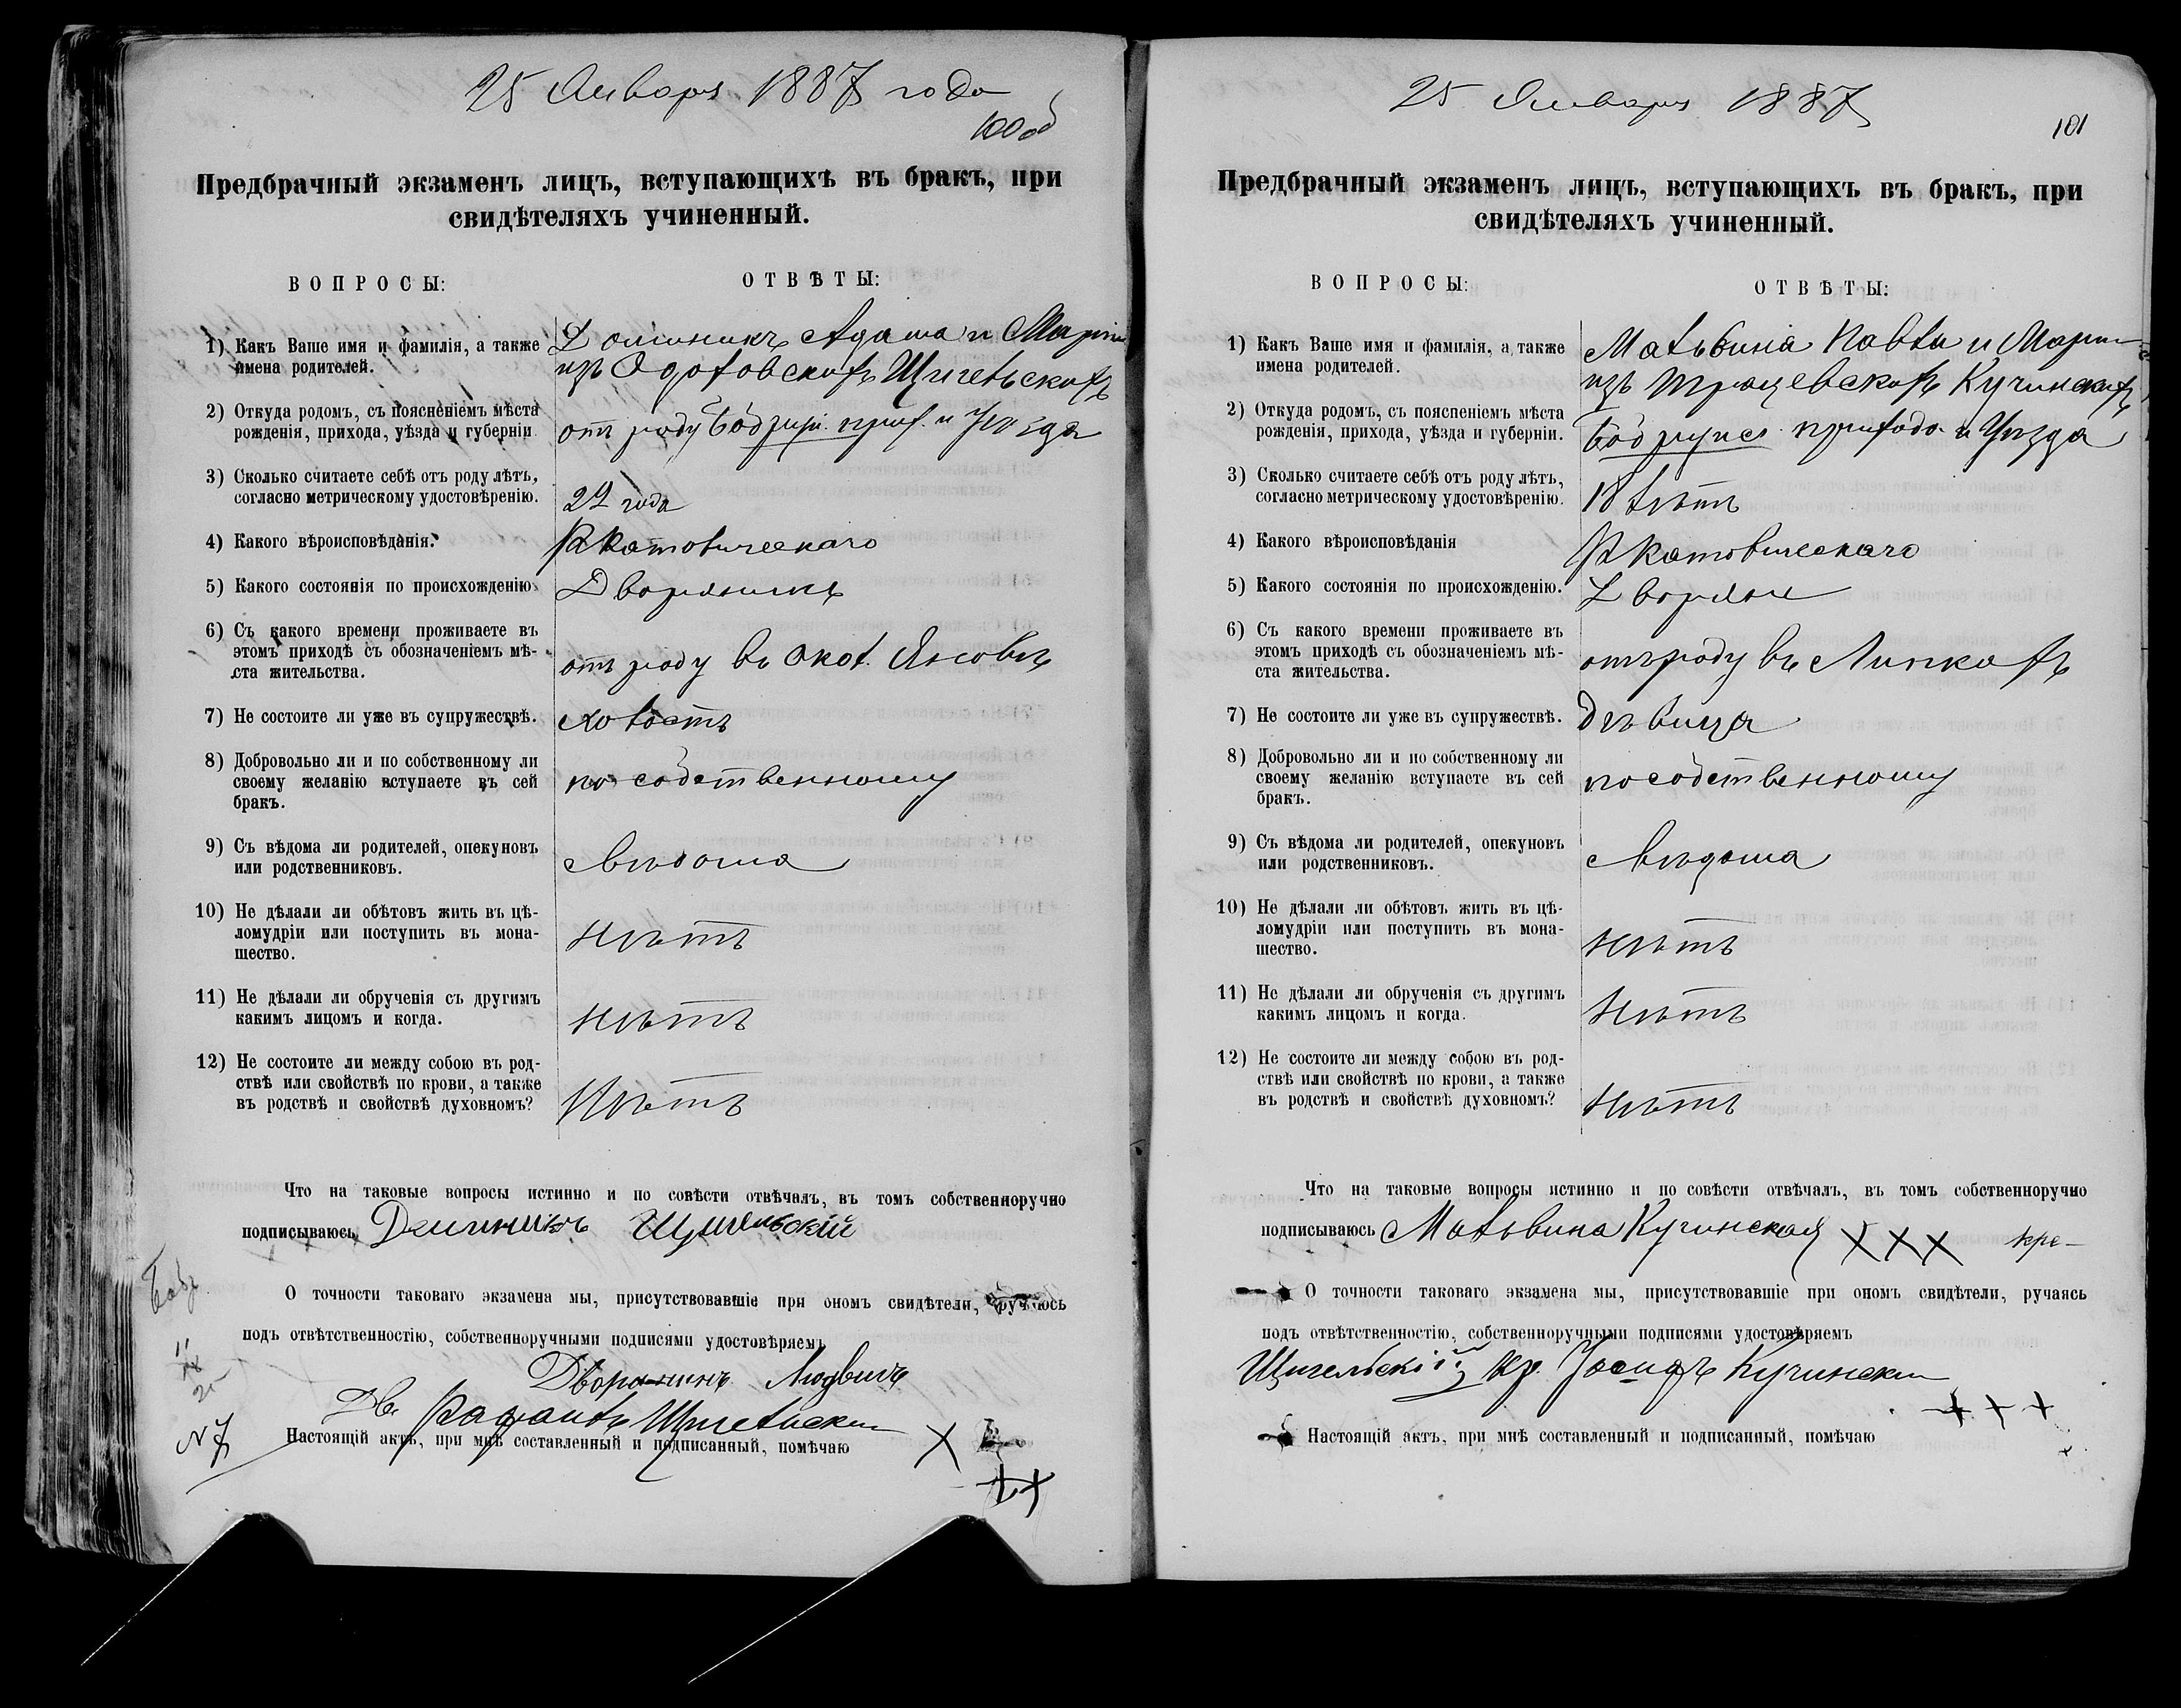 25 Января 1887 года
100об
Предбрачный экзаменъ лицъ, вступающихъ въ бракъ, при
свидѣтеляхъ учиненный.
ВОПРОСЫ:
ОТВѢТЫ:
1) Какъ Ваше имя и фамилія, а также
имена родителей.
Доминикъ Адама и Маріи
изъ Щигельскихъ
2) Откуда родомъ, съ поясненіемъ мѣста
рожденія, прихода, уѣзда и губерніи
отъ роду Бобруй. прих. и Уѣзда
3) Сколько считаете себѣ отъ роду лѣтъ,
согласно метрическому удостовѣренію.
22 года
4) Какого вѣроисповѣданія.
Р Католическаго
5) Какого состоянія по происхожденію
Дворянинъ
6) Съ какого времени проживаете въ
этомъ приходѣ съ обозначеніемъ мѣ-
ста жительства.
отъ роду въ Окол. Ясовкѣ
7) Не состоите ли уже въ супружествѣ.
холостъ
8) Добровольно ли и по собственному ли
своему желанію вступаете въ сей
бракъ.
по собственному
9) Съ вѣдома ли родителей, опекуновъ
или родственниковъ.
свѣдома
10) Не дѣлали ли обѣтовъ жить въ цѣ-
ломудріи или поступить въ мона-
шество.
нѣтъ
11) Не дѣлали ли обрученія съ другимъ
какимъ лицомъ и когда.
нѣтъ
12) Не состоите ли между собою въ род-
ствѣ или свойствѣ по крови, а также
въ родствѣ и свойствѣ духовномъ?
Нѣтъ
Что на таковые вопросы истинно и по совѣсти отвѣчалъ, въ томъ собственноручно
подписываюсь Доминикъ Щигельскій
Бобр.
О точности таковаго экзамена мы, присутствовавшіе при ономъ свидѣтели, ручаюсь
подъ отвѣтственностію, собственноручными подписями удостовѣряемъ
Дворянинъ Людвигъ
Дв. Рафаилъ Щигельскій
N 7
Настоящій актъ, при мнѣ составленный и подписанный, помѣчаю X
XX
25 Января 1887
101
Предбрачный экзаменъ лицъ, вступающихъ въ бракъ, при
свидѣтеляхъ учиненный.
ВОПРОСЫ:
ОТВѢТЫ:
1) Какъ Ваше имя и фамилія, а также
имена родителей.
Мальвина Павла и Маріи
изъ Кучинскихъ
2) Откуда родомъ, съ поясненіемъ мѣста
рожденія, прихода, уѣзда и губерніи.
Бобруйск. прихода и Уѣзда
3) Сколько считаете себѣ отъ роду лѣтъ,
согласно метрическому удостовѣренію.
18 лѣтъ
4) Какого вѣроисповѣданія
Р Католическаго
5) Какого состоянія по происхожденію.
Дворянк
6) Съ какого времени проживаете въ
этомъ приходѣ съ обозначеніемъ мѣ-
ста жительства.
отъ роду въ Липкахъ
7) Не состоите ли уже въ супружествѣ.
дѣвица
8) Добровольно ли и по собственному ли
своему желанію вступаете въ сей
бракъ.
по собственному
9) Съ вѣдома ли родителей, опекуновъ
или родственниковъ.
свѣдома
10) Не дѣлали ли обѣтовъ жить въ цѣ-
ломудріи или поступить въ мона-
шество.
нѣтъ
11) Не дѣлали ли обрученія съ другимъ
какимъ лицомъ и когда.
нѣтъ
12) Не состоите ли между собою въ род-
ствѣ или свойствѣ по крови, а также
въ родствѣ и свойствѣ духовномъ?
нѣтъ
Что на таковые вопросы истинно и по совѣсти отвѣчалъ, въ томъ собственноручно
подписываюсь Мальвина Кучинская XXX кре-
О точности таковаго экзамена мы, присутствовавшіе при ономъ свидѣтели, ручаясь
подъ отвѣтственностію, собственноручными подписями удостовѣряемъ
Щигельскій кр. Іосифъ Кучинскій
+ + +
Настоящій актъ, при мнѣ составленный и подписанный, помѣчаю